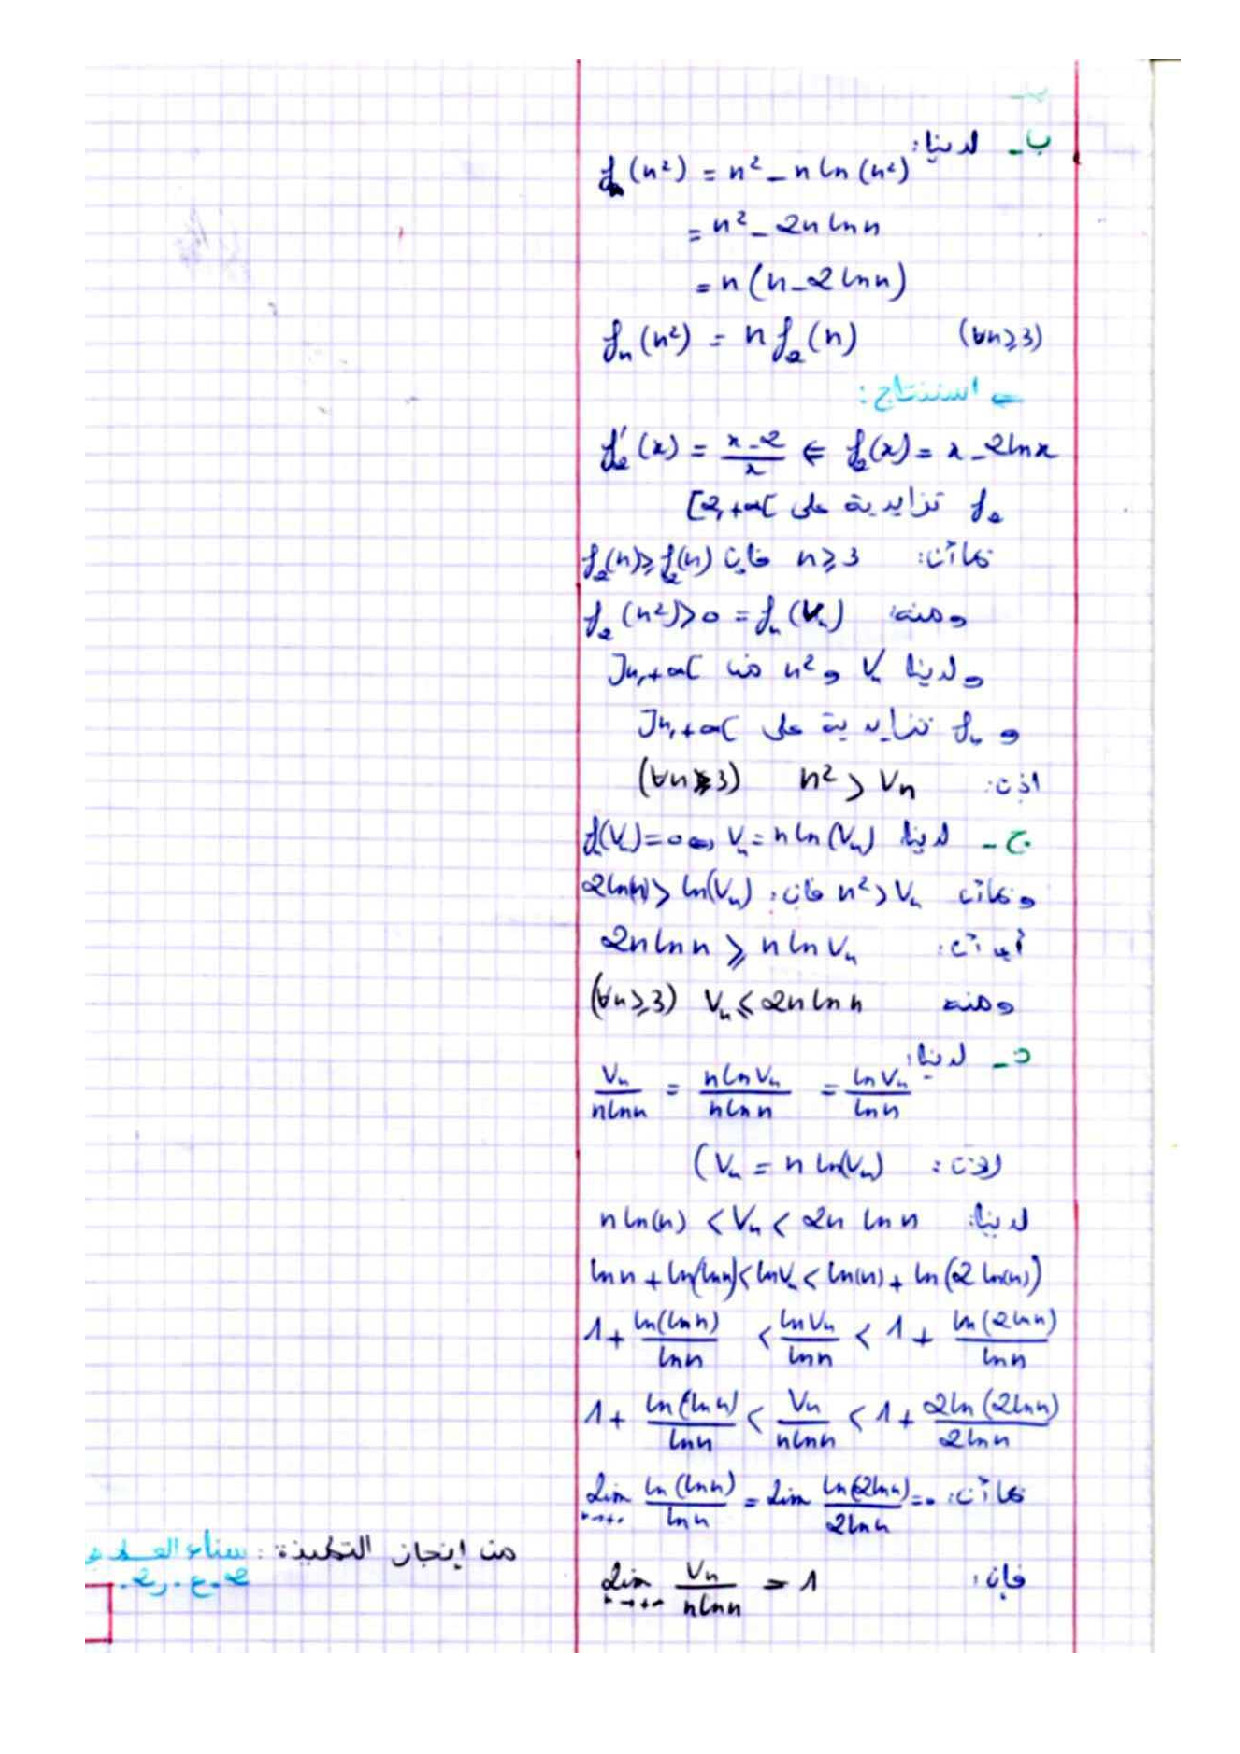 ب - لدينا:
f_n(n²) = n² - n ln(n²)
= n² - 2n ln n
= n(n - 2 ln n)
f_n(n²) = n f_2(n) (∀n ≥ 3)
استنتاج :
f'_2(x) = (x - 2)/x ⇐ f_2(x) = x - 2 ln x
f_2 تزايدية على [2,+∞[
بما أن: n ≥ 3 فإن f_2(n) ≥ f_2(n)
ومنه: f_2(n²) > 0 = f_n(V_n)
ولدينا V_n و n² من ]n,+∞[
و f_n تزايدية على ]n,+∞[
إذن: n² > V_n (∀n ≥ 3)
ج - لدينا V_n = n ln(V_n) ⇔ f_n(V_n) = 0
وبما أن n² > V_n فإن: 2ln(n) > ln(V_n)
أي أن: 2n ln n ≥ n ln V_n
ومنه V_n ≤ 2n ln n (∀n ≥ 3)
د - لدينا:
V_n/(n ln n) = (n ln V_n)/(n ln n) = (ln V_n)/(ln n)
(لأن: V_n = n ln(V_n)
لدينا: n ln(n) < V_n < 2n ln n
ln n + ln(ln n) < ln V_n < ln(n) + ln(2 ln(n))
1 + ln(ln n)/(ln n) < (ln V_n)/(ln n) < 1 + ln(2 ln n)/(ln n)
1 + ln(ln n)/(ln n) < V_n/(n ln n) < 1 + 2 ln(2 ln n)/(2 ln n)
بما أن: lim_{n→+∞} ln(ln n)/(ln n) = lim ln(2 ln n)/(2 ln n) = 0
فإن: lim_{n→+∞} V_n/(n ln n) = 1
من إنجاز التلميذة : سناء